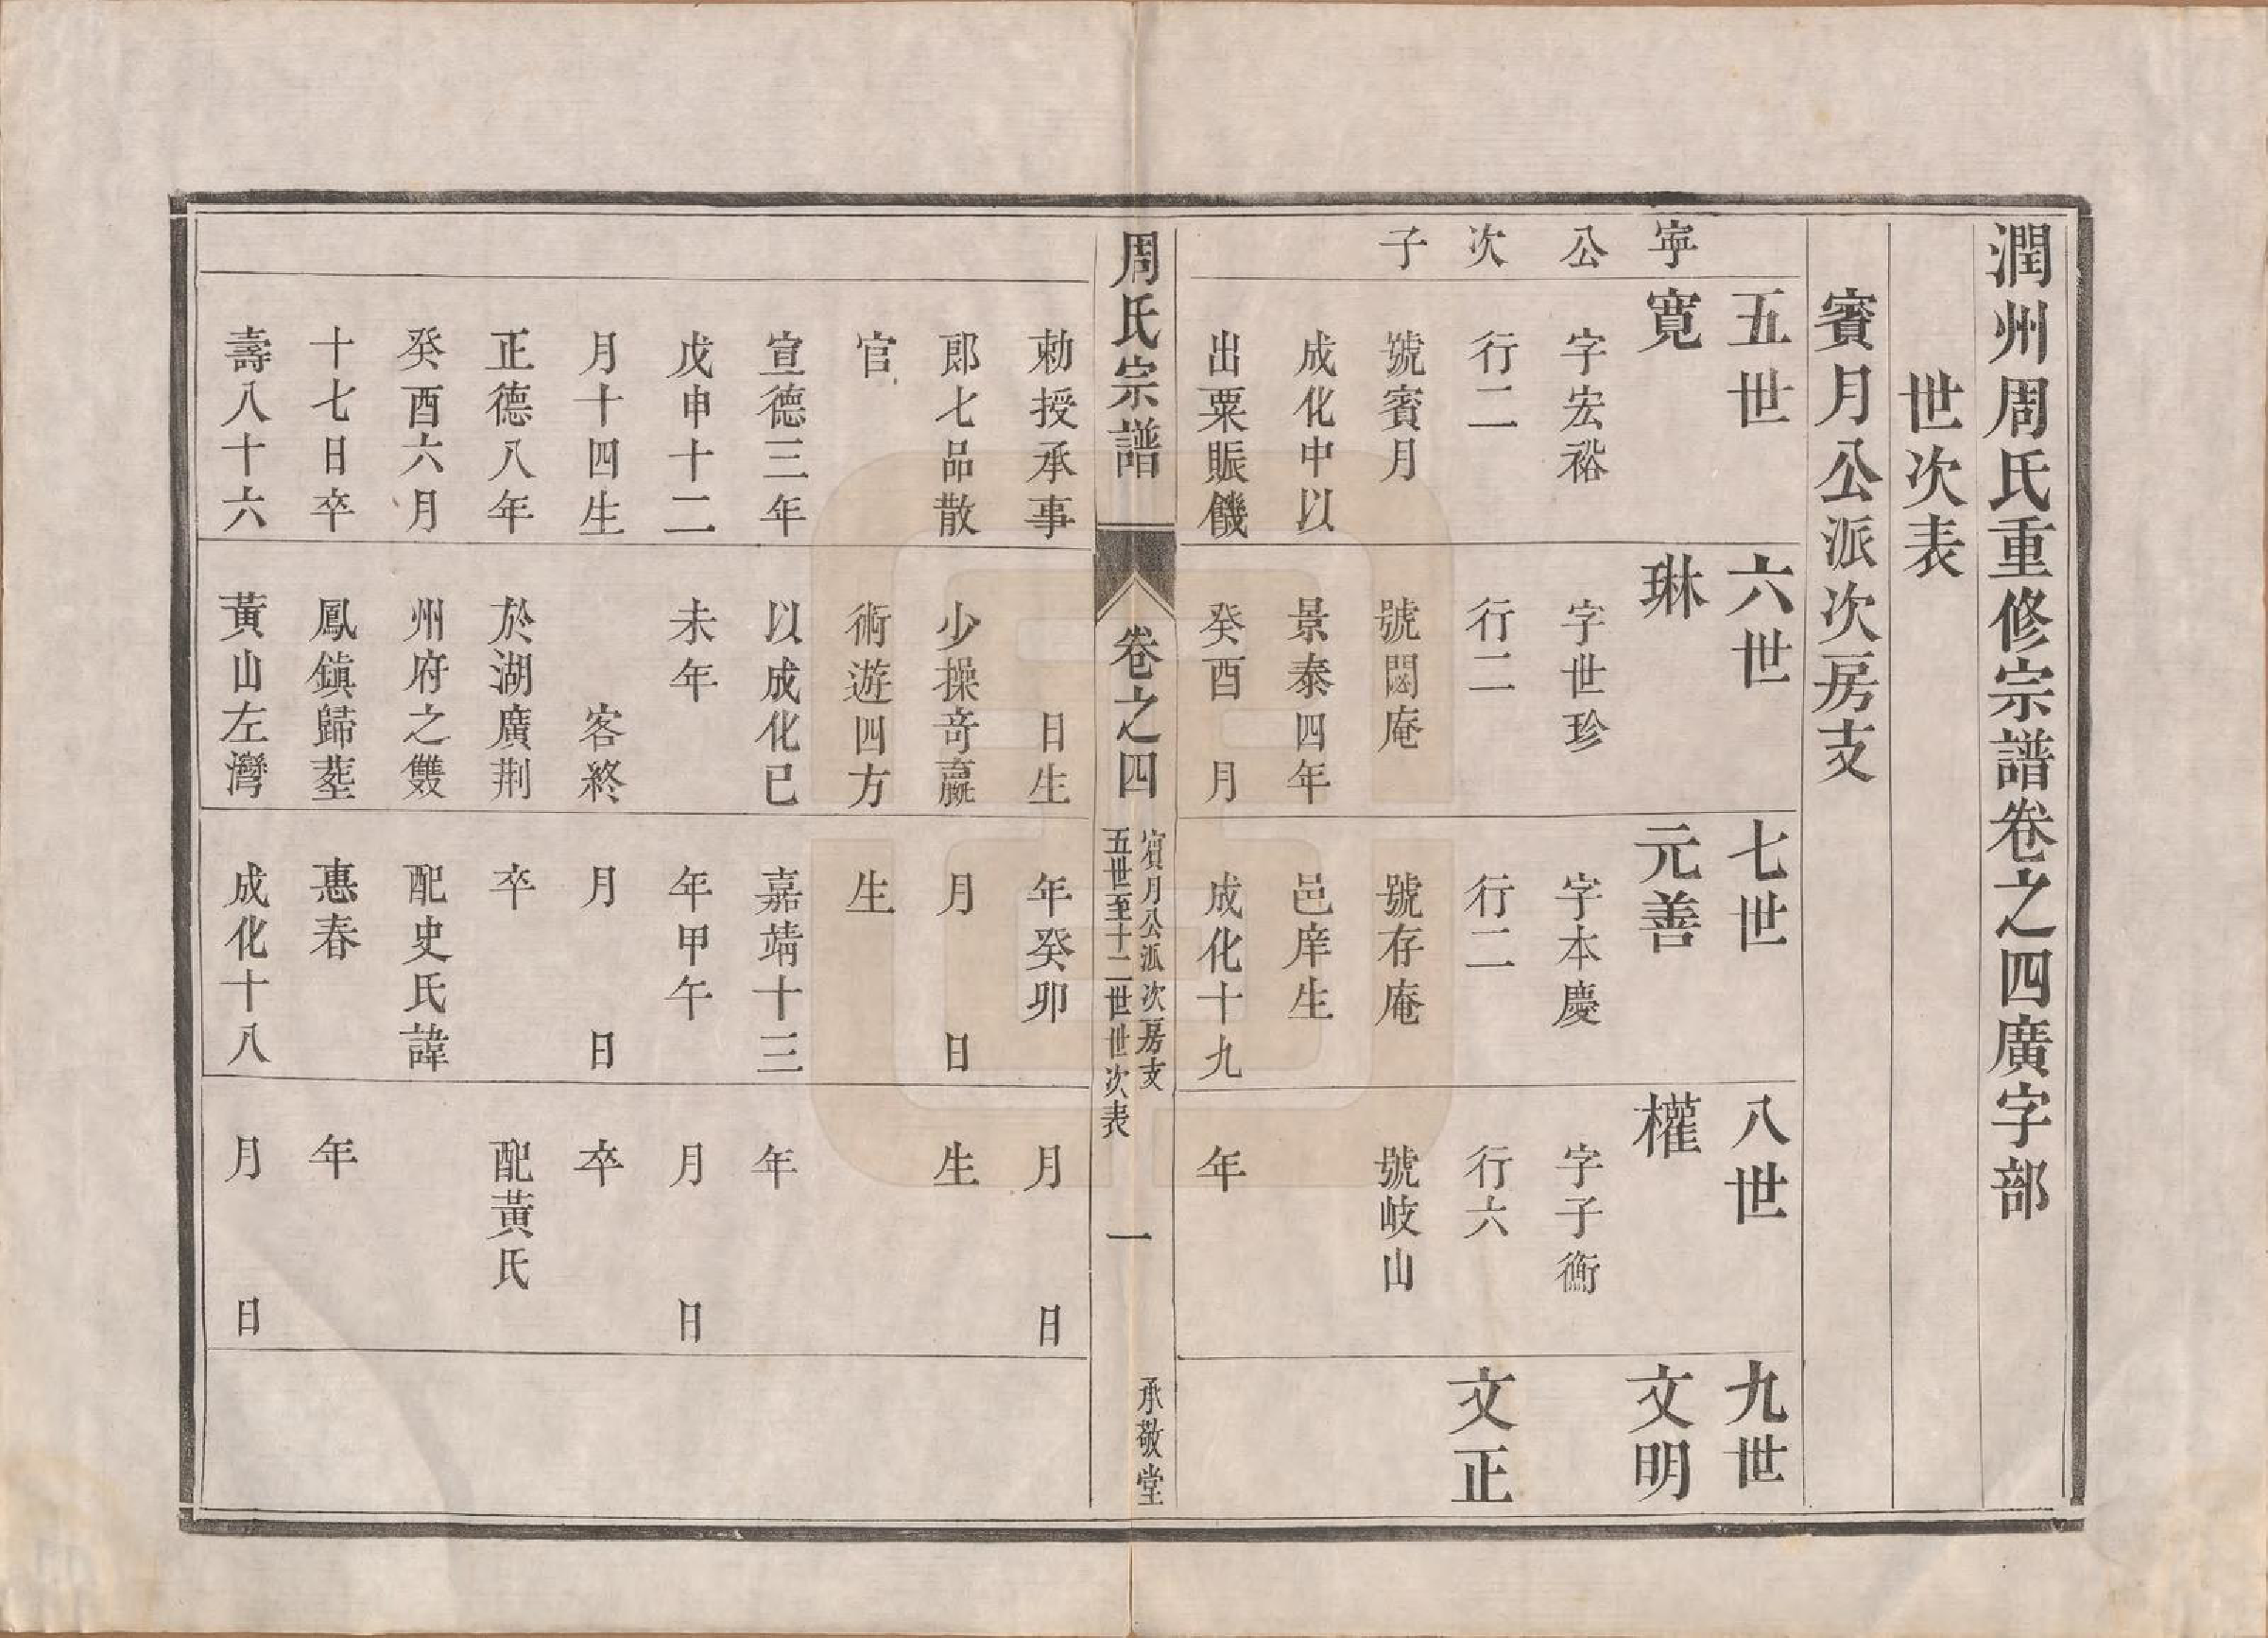 潤州周氏重修宗譜卷之四廣字部
世次表
賓月公派次房支
五世
六世
七世
八世
九世
寕
公
次
子
寛
字宏裕
行二
號賓月
成化中以
出粟賑饑
勅授承事
郎七品散
官
宣德三年
戊申十二
月十四生
正德八年
癸酉六月
十七日卒
壽八十六
琳
字世珍
行二
號閟庵
景泰四年
癸酉 月
日生
少操竒贏
術遊四方
以成化已
未年
客終
於湖廣荆
州府之雙
鳳鎮歸塟
黃山左灣
元善
字本慶
行二
號存庵
邑庠生
成化十九
年癸卯
月 日
生
嘉靖十三
年甲午
月 日
卒
配史氏諱
惠春
成化十八
權
字子衡
行六
號岐山
年
月 日
生
年
月 日
卒
配黃氏
年
月 日
文明
文正
周氏宗譜
卷之四
賓月公派次房支
五世至十二世世次表
一
承敬堂